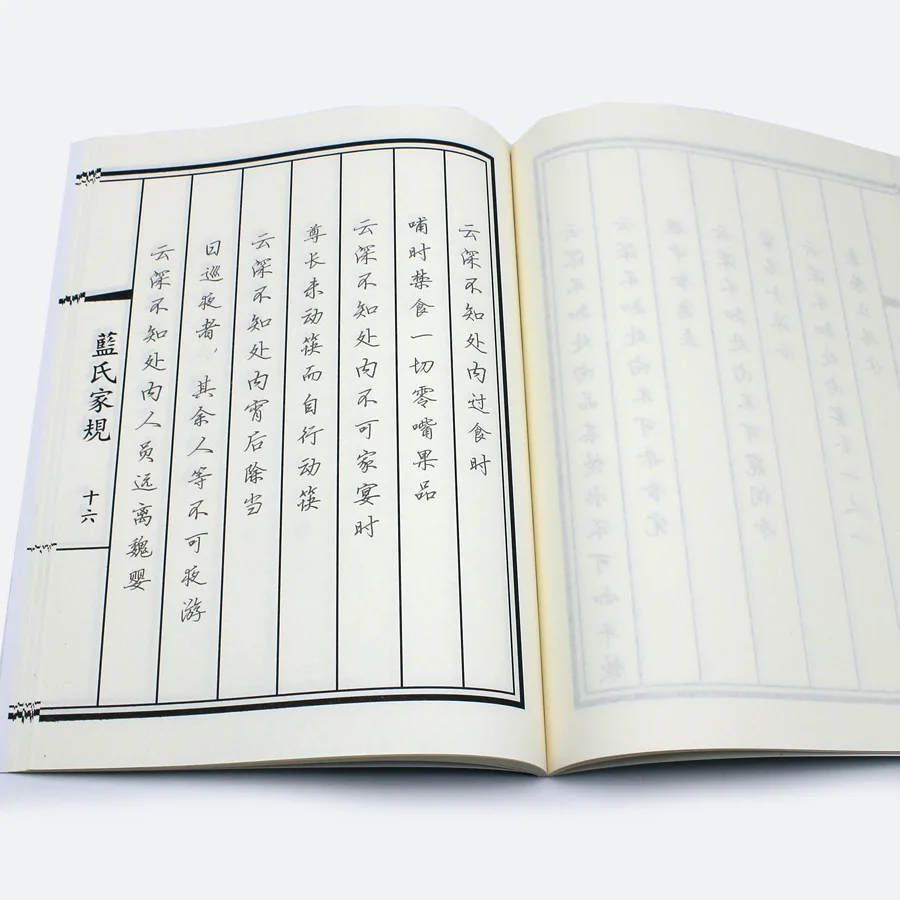 云深不知处内过食时
哺时禁食一切零嘴果品
云深不知处内不可家宴时
尊长未动筷而自行动筷
云深不知处内宵后除当
日巡夜者,其余人等不可夜游
云深不知处内人员远离魏婴
藍氏家規
十六